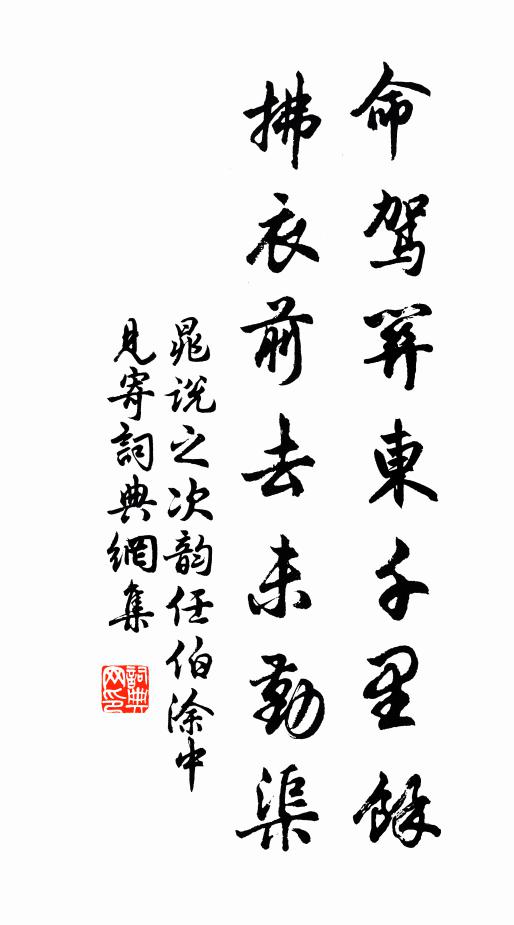 命駕關東千里餘
拂衣前去未勤渠
晁説之次韵任伯涂中
見寄詞典網集
詞典
网印